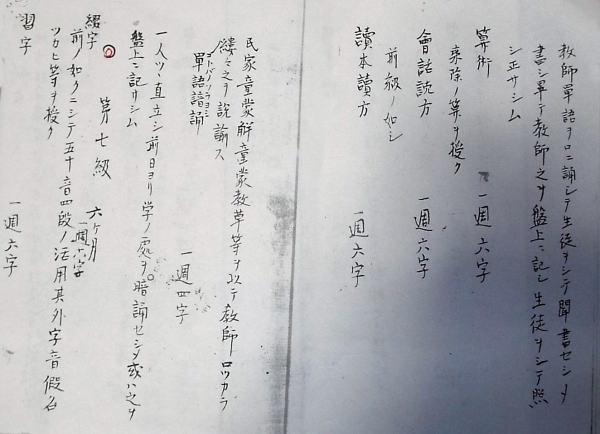 教師單語ヲ口ニ誦シテ生徒ヲシテ聞書セシメ
書シ畢テ教師之ヲ盤上ニ記シ生徒ヲシテ照
シ正サシム
算術 一週六字
乘除ノ算ヲ授ク
會話読方 一週六字
前級ノ如シ
讀本讀方 一週六字
民家童蒙解童蒙教草等ヲ以テ教師口ツカラ
縷々之ヲ説諭ス
コトバノソラヨミ
單語諳誦 一週四字
一人ツヽ直立シ前日ヨリ学ノ處ヲ暗誦セシメ或ハ之ヲ
盤上ニ記サシム
第七級 六ケ月
綴字 一週六字
前ノ如クニシテ五十音四段ノ活用其外字音假名
ツカヒ等ヲ授ク
習字 一週六字